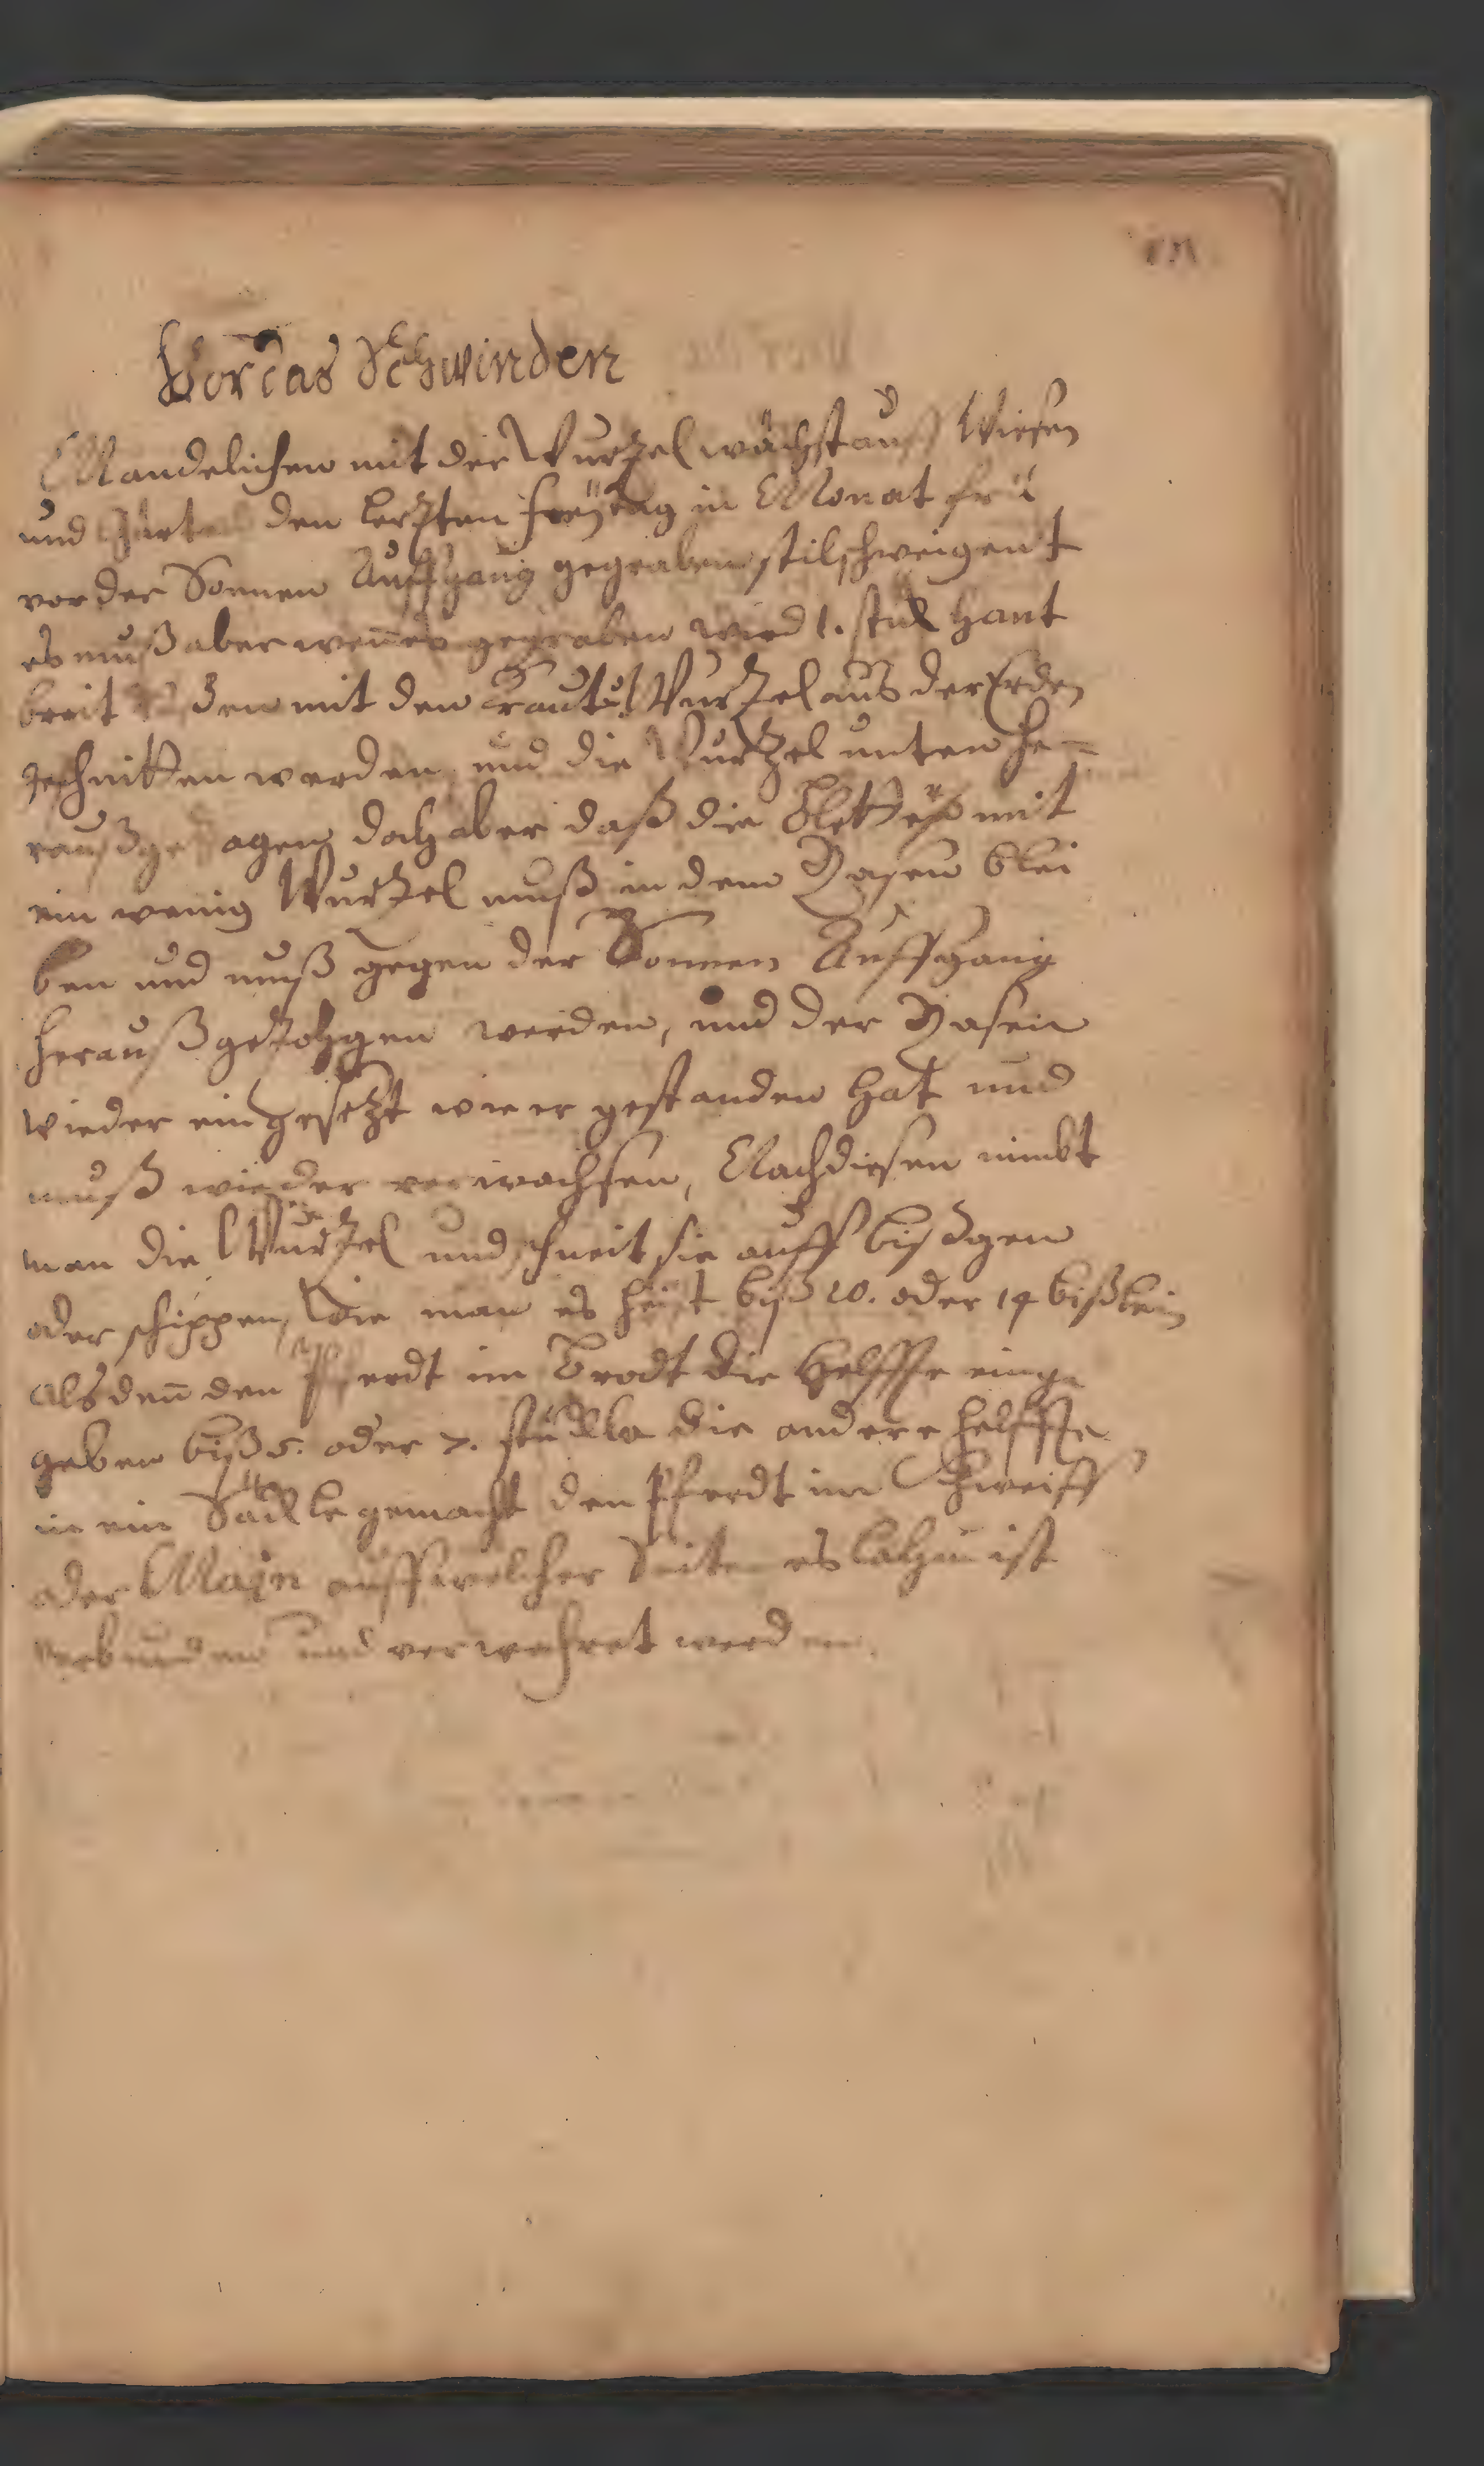 Vor das Schwinden
Mandelichen mit der Wurtzel wächst auff Wiesen
und den letzten freÿtag in Monat frü
vor der Sonnen Auffgang gegraben stilschweigent
es muß aber wen̄ es gegraben wird 1. stuk hant
breit den mit den kraut u. Wurtzel aus der Erden
geschnitten werden, und die Wurtzel unten he-
rauß gezogen doch aber daß die Bletter mit
ein wenig Wurtzel muß in dem Rasen blei
ben und muß gegen der Sonnen Auffgang
herauß getzohgen werden, und der Rasen
wieder ein gesetzt wie er gestanden hat und
muß wieder verwachsen, Nach diesen nimbt
man die Wurtzel und schneit sie auff bißgen
oder schippen, wie man es heist biß 10. oder 14 bißlein
als den̄ den Pferdt im Brodt die Helffte einge
geben biß 5. oder 7. stückla die andere helffte
in ein Säckle gemacht den Pferdt im Schweiff
oder Majn auff welcher Seiten es lahm ist
verbunden und verwahret werden.